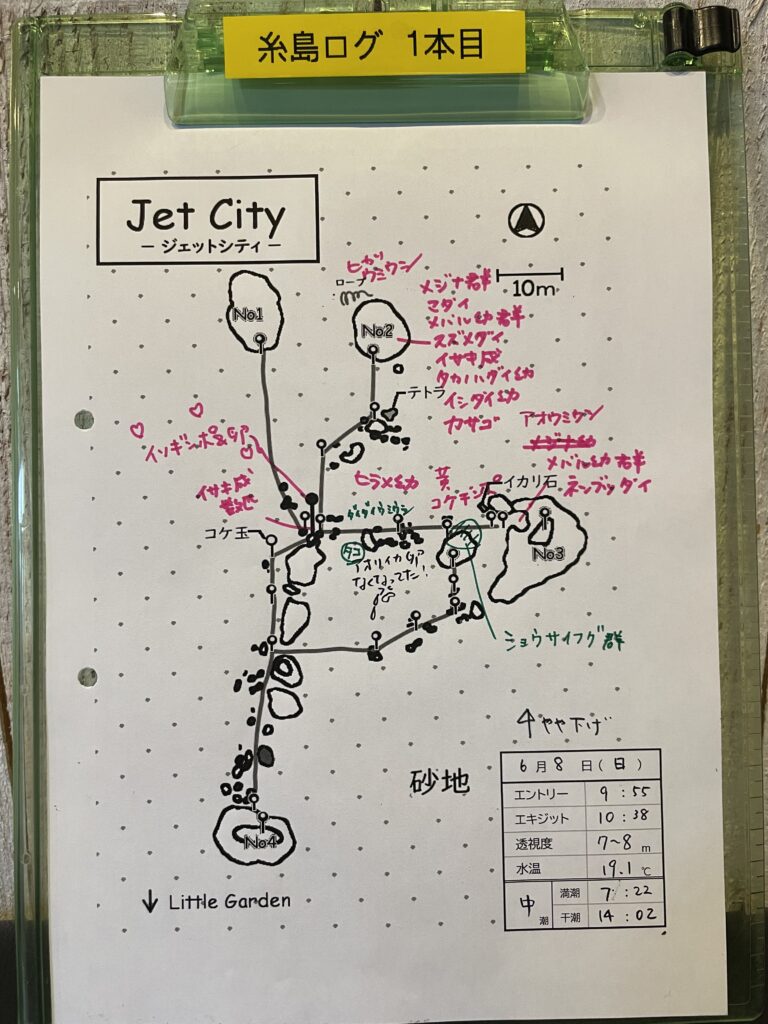 糸島ログ 1本目
Jet City
－ジェットシティ－
10m
ヒガサ
ウミウシ
ロープ
No1
No2
メジナ群
マダイ
メバル幼群
スズメダイ
イサキ成
タカノハダイ幼
イシダイ幼
カサゴ
テトラ
イソギンポ&卵
アオウミウシ
メジナ幼
メバル幼群
ネンブツダイ
イサキ成
ヒラメ幼
黄
コケギンポ
イカリ石
ダイダイウミウシ
コケ玉
タコ
アオリイカ卵
なくなってた!
No3
ショウサイフグ群
↑やや下げ
砂地
6月8日(日)
エントリー 9:55
エキジット 10:38
透視度 7~8m
水温 19.1℃
中潮
満潮 7:22
干潮 14:02
No4
↓ Little Garden